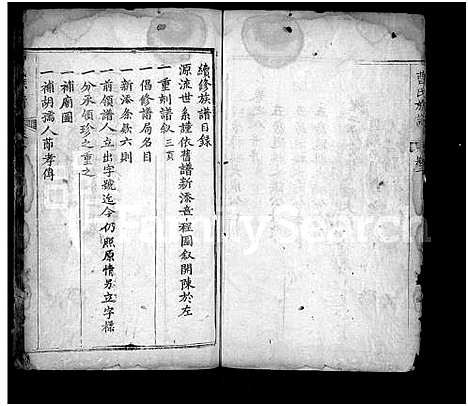 續修族譜目錄
源流世系謹依舊譜新添音程圖叙開陳於左
一重刻譜叙三頁
一倡修譜局名目
一新添條欵六則
一前領譜人立出字號迄今仍照原情另立字樣
一分承領珍之重之
一補廟圖
一補胡孺人節孝傳
曹氏族譜
FamilySearch